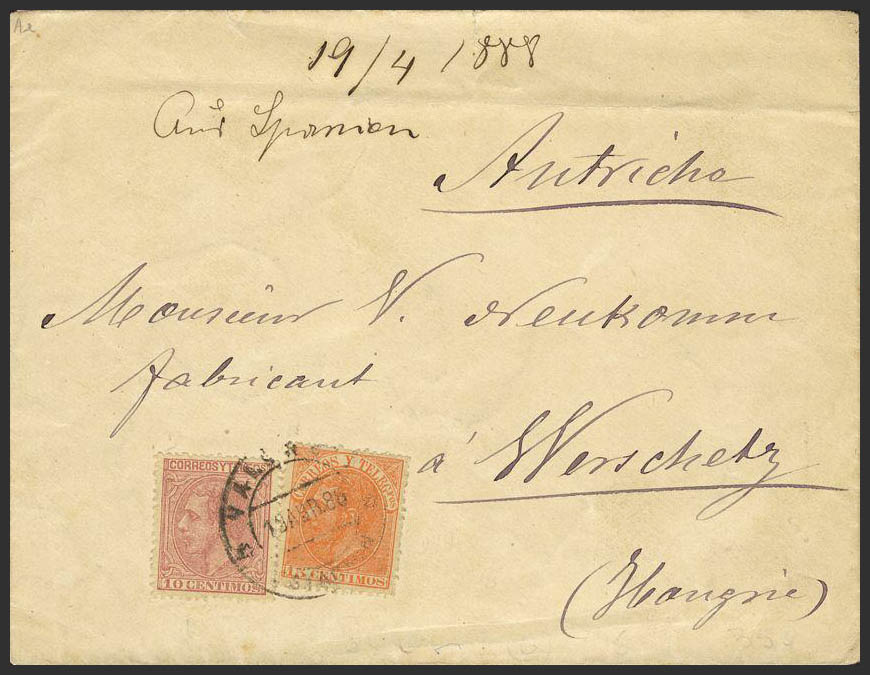 Ae
19/4 1888
Aus Spanien
Autriche
Monsieur V. Neukomm
fabricant
à Werschetz
(Hongrie)
CORREOS Y TELEGFS
10 CENTIMOS
CORREOS Y TELEGFS
15 CENTIMOS
18 ABR 86